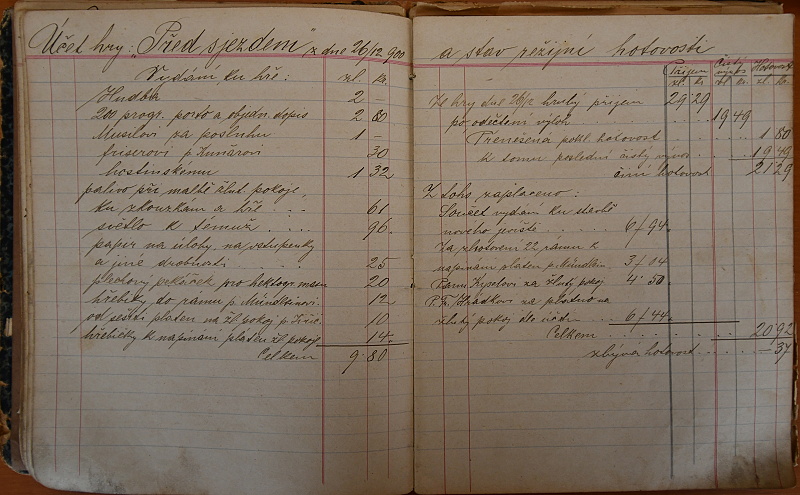 Účet hry: „Před sjezdem" z dne 26/12 900
Vydání ku hře: zl. kr.
Hudba 2 –
200 progr. porto a objedn. dopis 2 80
Musilovi za posluhu 1 –
friserovi p. 30
hostinskému 1 32
palivo při malbě žlut. pokoje,
ku zkouzkám a hře . . . 61
světlo k temuž . . 96.
paper na úlohy, na vstupenky
a jiné drobnosti . . . . 25
plechový pekáček pro hektogr. massu 20
hřebíky do rámu p. 12
od sešití pláten na žl. pokoj p. 10
hřebíčky k napínání pláten žl. pokoj 14.
Celkem 9.80
a stav režijní hotovosti
Příjem Čistý výnos Hotovost
zl. kr. zl. kr. zl. kr.
Ze hry dne 26/12 hrubý příjem 29 29
po odečtení výloh . . . . 19 49
Přenešená pokl. hotovost . . 1 80
k tomu poslední čistý výnos . . 19 49
činí hotovost 21 29
Z toho zaplaceno:
Součet vydání ku stavbě
nového jeviště . . . . 6/94
Za zhotovení 22 rámu k
napínání pláten p. 3/04
Panu za žlutý pokoj 4.50
P. Fr. za plátno na
žlutý pokoj dle účtu . . 6/44.
Celkem . . . . . . . 20 92
zbývá hotovost . . . . – 37